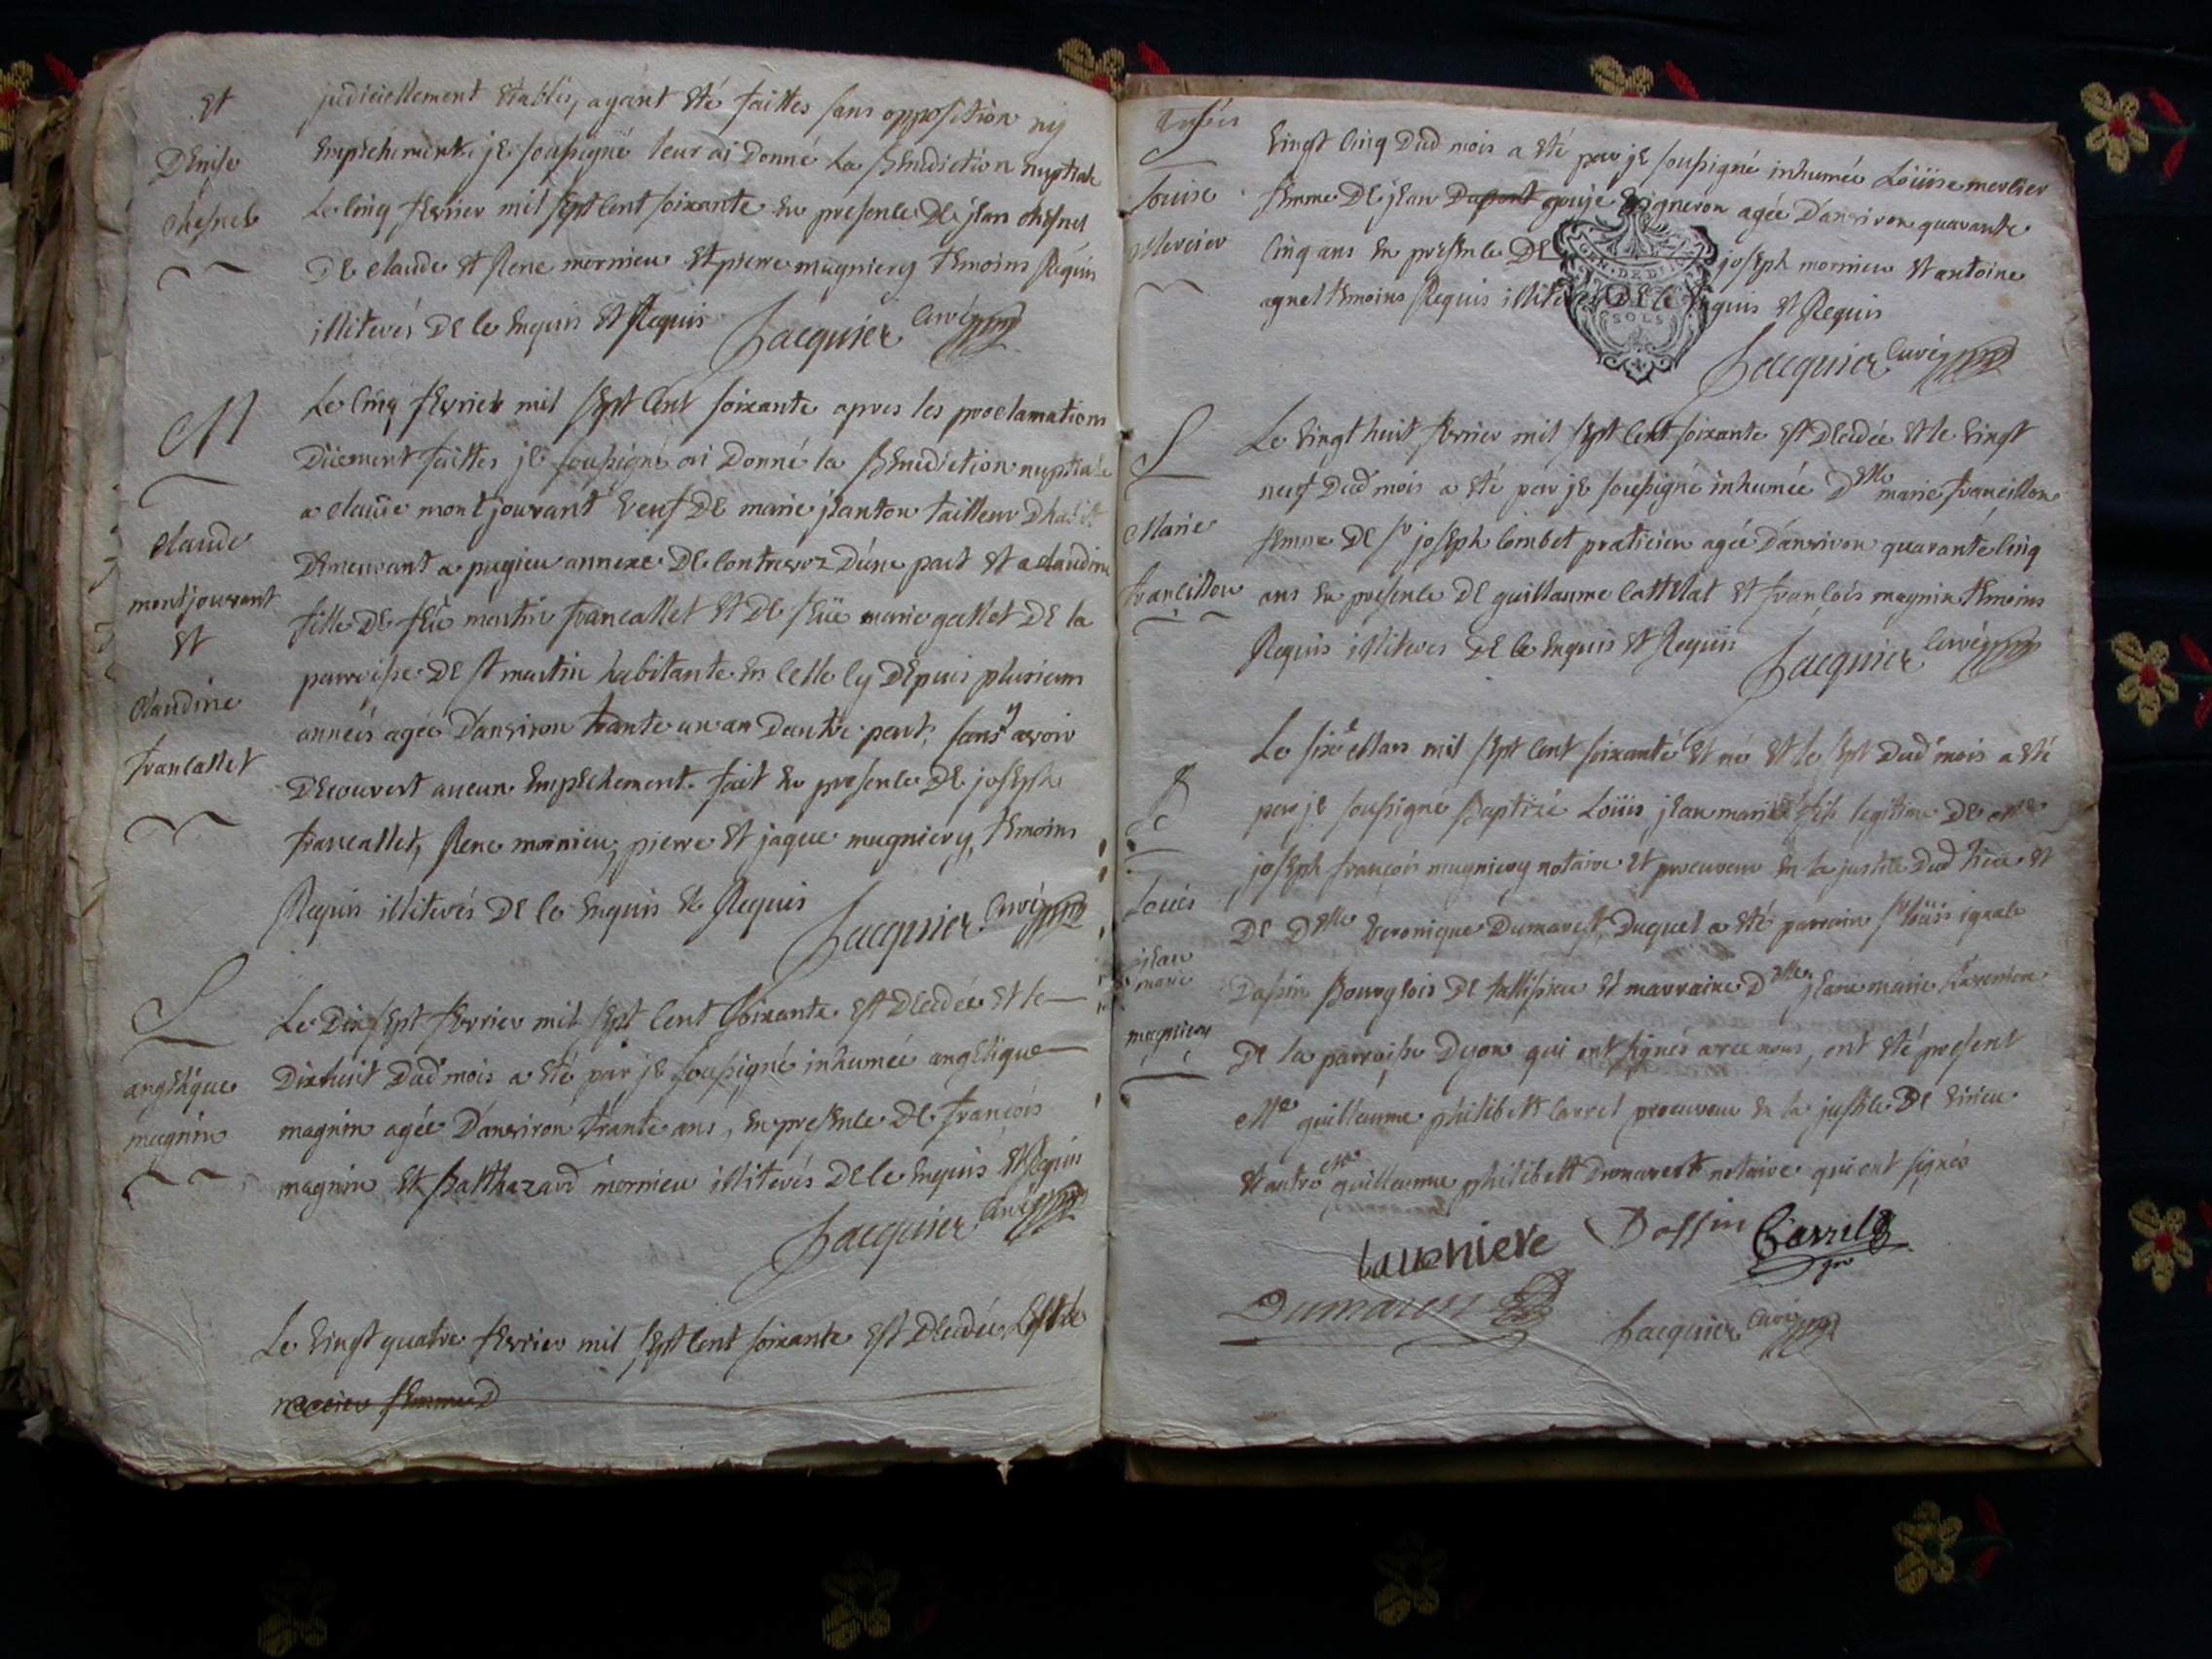 et
Denise
Chesnel
judiciellement établis, ayant été faittes sans opposition ny
empechement. je soussigné leur ai donné la benediction nuptiale
Le cinq fevrier mil sept cent soixante en presence de jean chesnel
de claude et Rene mornieu et pierre mugniery temoins Requis
illiterés de ce enquis et Requis Jacquier curé
M
claude
montjouvant
et
claudine
francallet
Le cinq fevrier mil sept cent soixante apres les proclamations
düement faittes je soussigné ai donné la benediction nuptiale
a claude montjouvant veuf de marie jeanton tailleur d'habit
demeurant a pugieu annexe de contrevoz d'une part et a claudine
fille de feu martin francallet et de feüe marie gallet de la
parroisse de st martin habitante en celle cy depuis plusieurs
années agée d'anviron trante un an dautre part, sans y avoir
decouvert aucun empechement. fait en presence de joseph
francallet, Rene mornieu, pierre et jaque mugniery, temoins
Requis illiterés de ce enquis et Requis Jacquier curé
S
angelique
magnin
Le dix sept fevrier mil sept cent soixante est decedée et le
dixhuit dud mois a été par je soussigné inhumée angelique
magnin agée d'anviron trante ans, en presence de françois
magnin et Balthazard mornieu illiterés de ce enquis et Requis
Jacquier curé
Le vingt quatre fevrier mil sept cent soixante est decedée et le
mercier femme D
S
Louise
Mercier
vingt cinq dud mois a été par je soussigné inhumée Loüise mercier
femme de jean Dupont goiije vigneron agée d'anviron quarante
cinq ans en presence de joseph mornieu et antoine
agnel temoins Requis illiterés de ce enquis et Requis
GEN. DE DIJON
SOLS
Jacquier curé
S
Marie
francillon
Le vingt huit fevrier mil sept cent soixante est decedée et le vingt
neuf dud mois a été par je soussigné inhumée Delle marie francillon
femme de sr joseph combet praticien agée d'anviron quarante cinq
ans en presence de guillaume cattelat et françois magnin temoins
Requis illiterés de ce enquis et Requis Jacquier curé
B
Louis
jean
marie
mugniery
Le six mars mil sept cent soixante est né et le sept dud mois a été
par je soussigné Baptizé Loüis jean marie fils legitime de Me
joseph françois mugniery notaire et procureur en la justice dud lieu et
de Delle veronique Dumarest, duquel a été parrain sr loüis
Dassin Bourgeois de tallissieu et marraine Delle jeane marie Laverniere
de la parroisse Dyon qui ont signés avec nous, ont été present
Me guillaume philibett carrel procureur en la justice de virieu
et autre Me guillaume philibett Dumarest notaire qui ont signés
Laverniere Dassin Carrel
Dumarest Jacquier curé